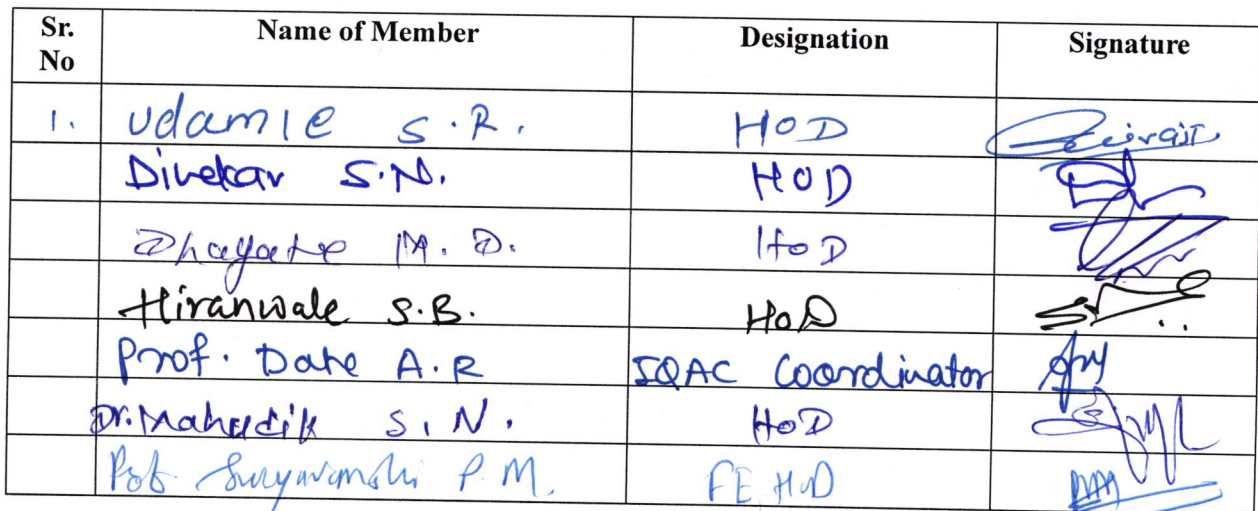 Sr. No Name of Member Designation Signature
1. Udamle S.R. HOD
Divekar S.N. HOD
Dhayate M.D. HoD
Hiranwale S.B. HoD
Prof. Date A.R IQAC Coordinator
Dr. Mahadik S.N. HoD
Prof. Suryavanshi P.M. FE HoD